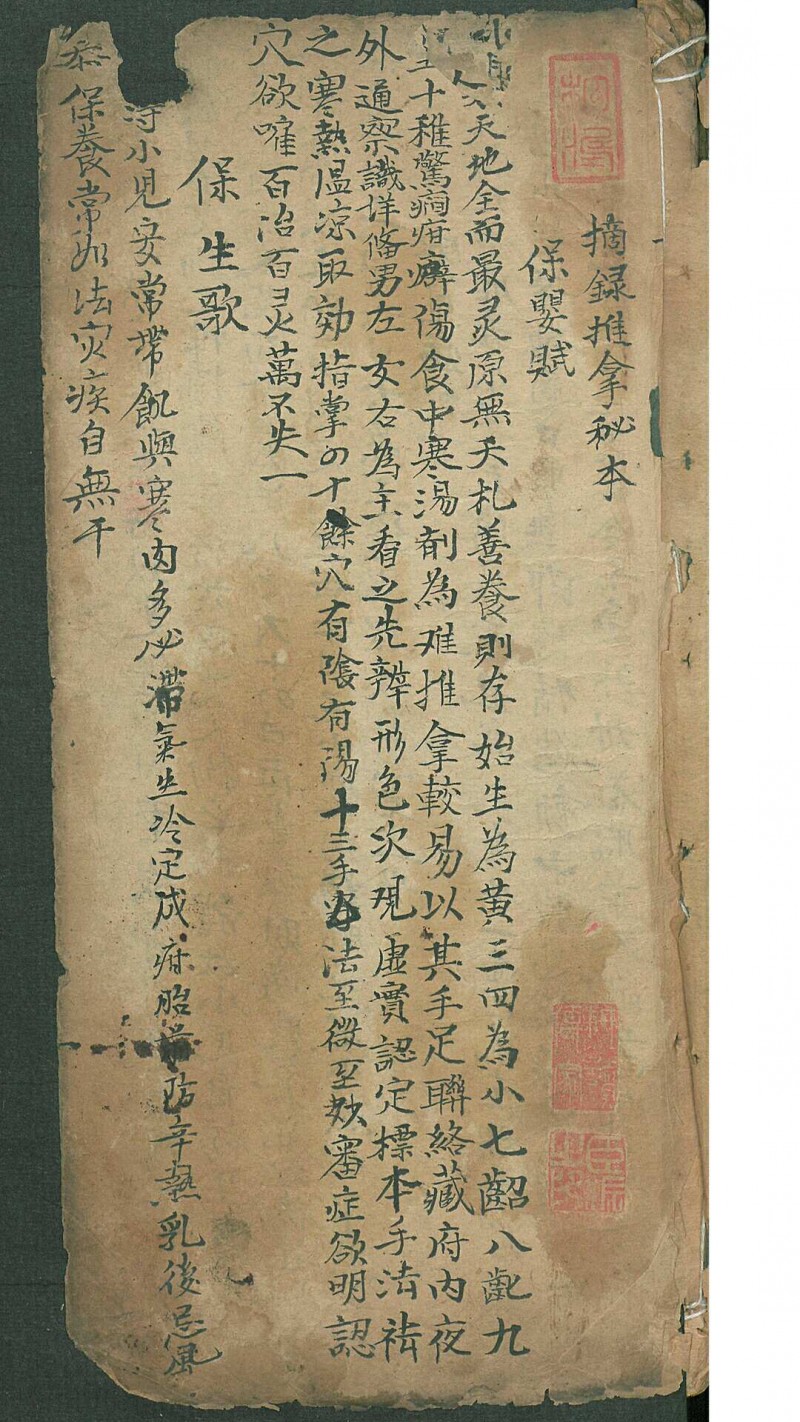 摘録推拿秘本
保嬰賦
人天地全而最灵原無夭札善養則存始生為黄三四為小七齠八齔九
十稚驚癇疳癖傷食中寒湯剤為难推拿較易以其手足聯絡藏府内夜
外通察識详俻男左女右為主看之先辨形色次观虚實認定標本手法祛
之寒熱温凉取効指掌四十餘穴有陰有陽十三手法至微至妙審症欲明認
穴欲確百治百灵萬不失一
保生歌
小児安常帶飢與寒肉多必滯氣生冷定成疳胎前防辛熱乳後忌風
保養常如法灾疾自無干